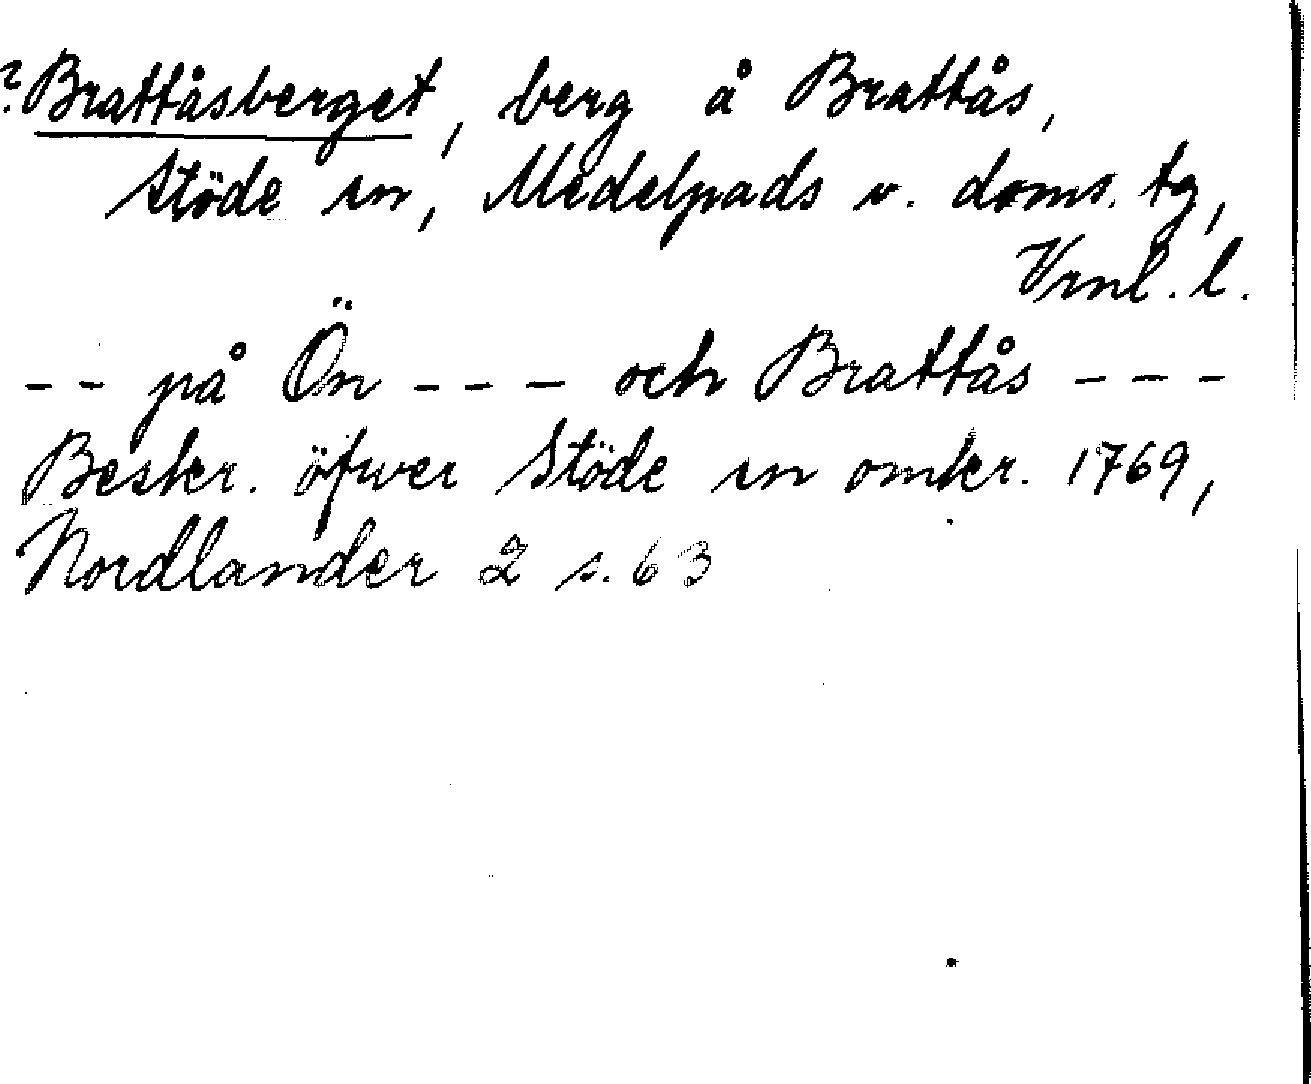 ? Brattåsberget, berg å Brattås,
Stöde sn, Medelpads v. doms. tg,
Vrnl. l.
-- på Ön --- och Brattås ---
Beskr. öfwer Stöde sn omkr. 1769,
Nordlander 2 s. 63